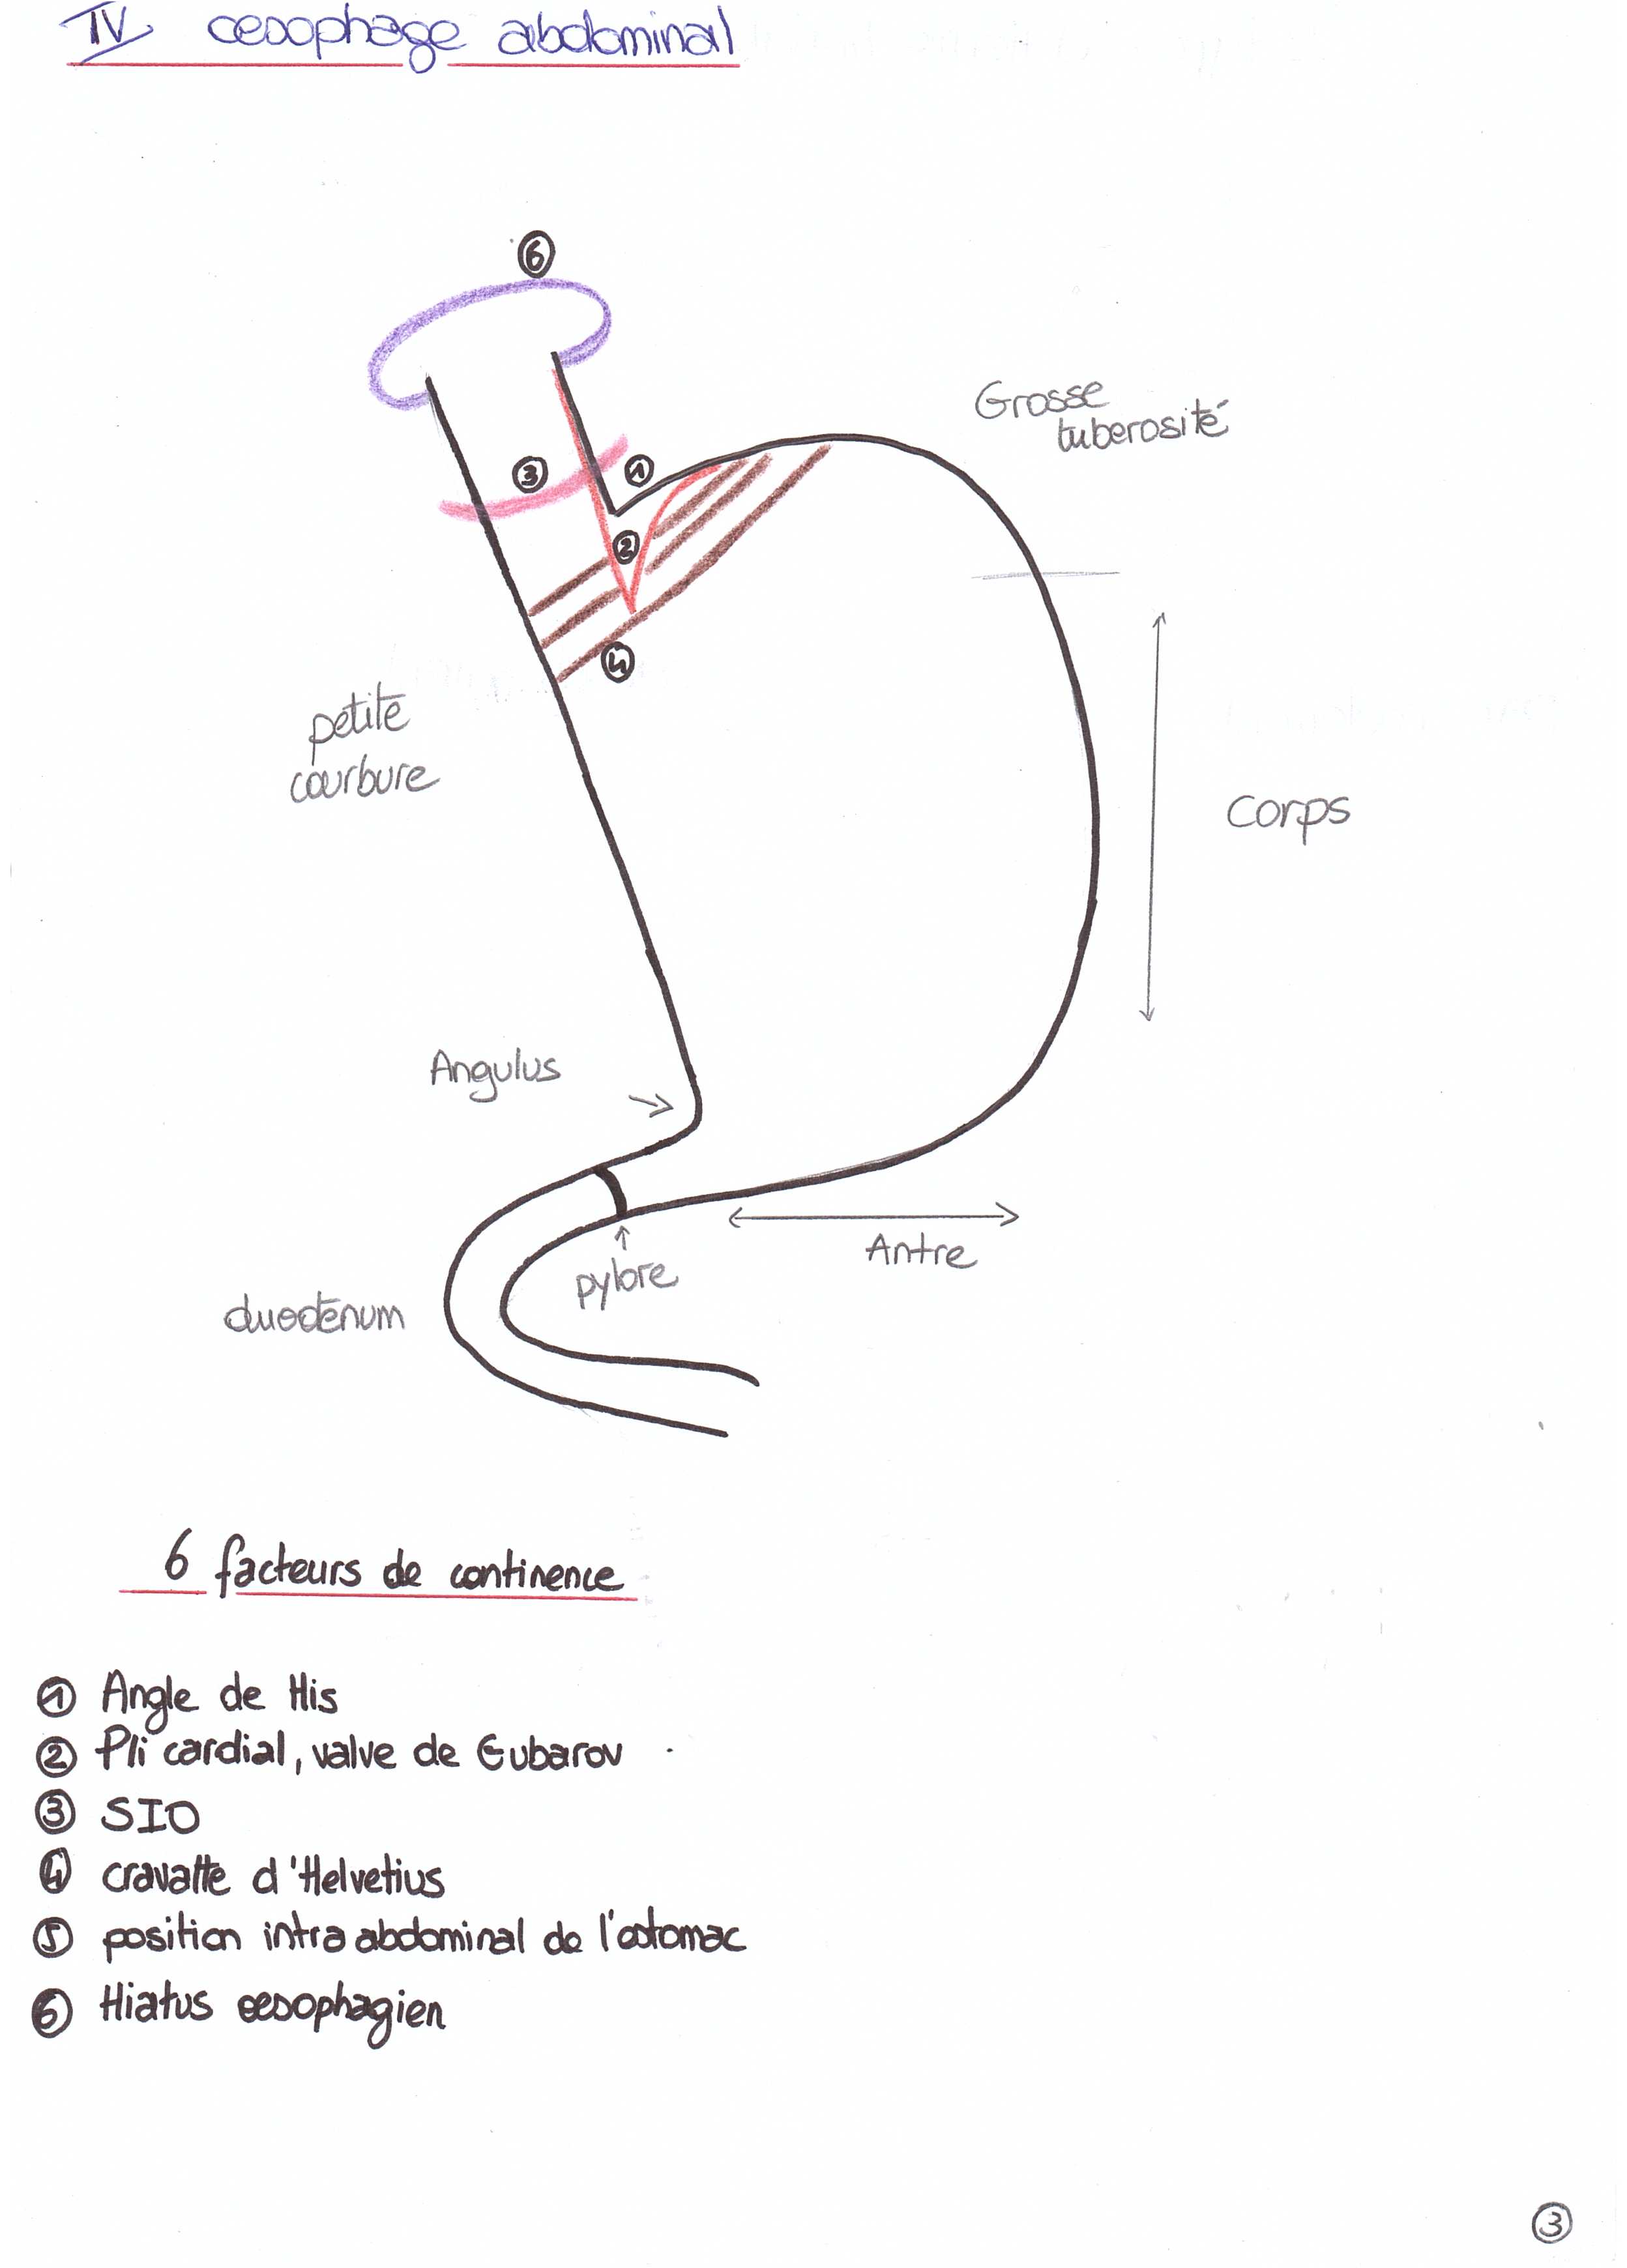 IV oesophage abdominal
⑥
Grosse
tuberosité
③ ①
②
④
petite
courbure
Corps
Angulus
Antre
pylore
duodenum
6 facteurs de continence
① Angle de His
② Pli cardial, valve de Gubarov
③ SIO
④ cravatte d'Helvetius
⑤ position intra abdominal de l'estomac
⑥ Hiatus oesophagien
③